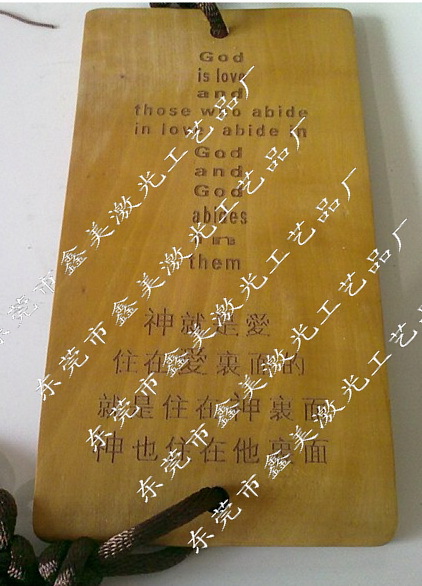 God
is love
and
those who abide
in love, abide in
God
and
God
abides
in
them
神就是愛
住在愛裏面的
就是住在神裏面
神也住在他裏面
东莞市鑫美激光工艺品厂
东莞市鑫美激光工艺品厂
东莞市鑫美激光工艺品厂
东莞市鑫美激光工艺品
东莞市鑫美激光工艺